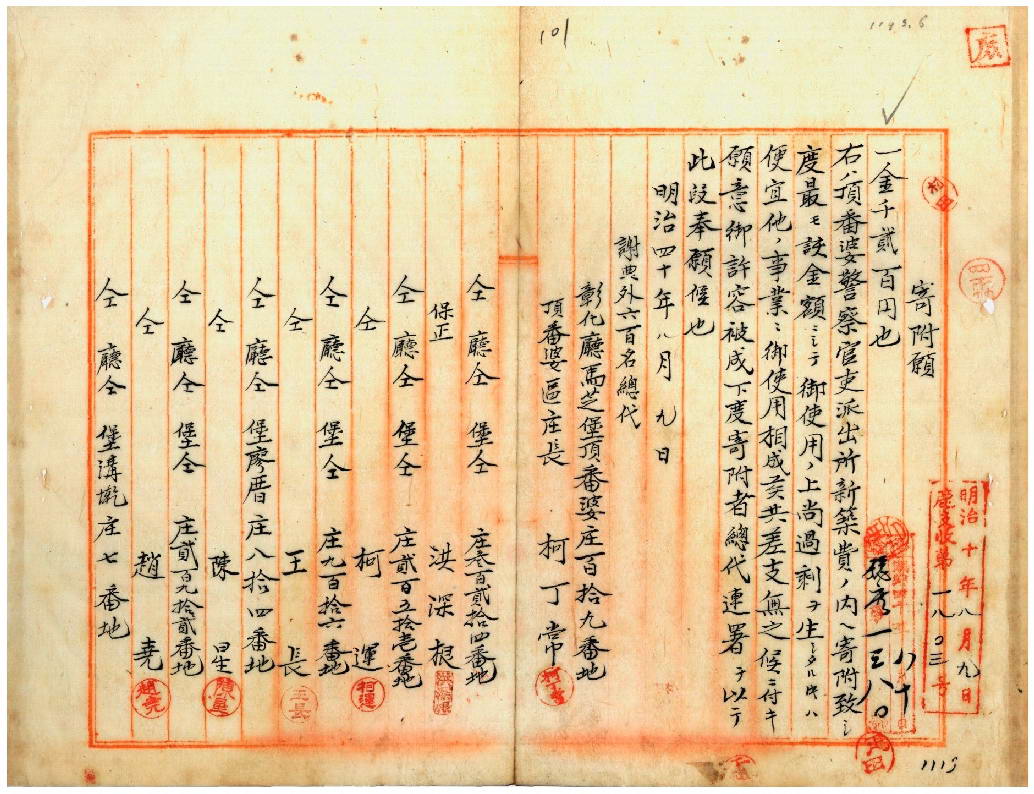 101
1193.6
廠
寄附願
一金千貳百円也
右ハ頂番婆警察官吏派出所新築費ノ內ヘ寄附致シ
度最モ該金額ニシテ御使用ノ上尚過剩ヲ生シタル時ハ
便宜他ノ事業ニ御使用相成候共差支無之候ニ付キ
願意御許容被成下度寄附者總代連署ヲ以テ
此段奉願候也
明治四十年八月九日
謝典外六百名總代
彰化廳馬芝堡頂番婆庄百拾九番地
頂番婆區庄長 柯丁常
仝廳仝堡仝庄叁百貳拾四番地
保正 洪深根
仝廳仝堡仝庄貳百五拾壱番地
仝 柯運
仝廳仝堡仝庄九百拾六番地
仝 王長
仝廳仝堡廖厝庄八拾四番地
仝 陳星
仝廳仝堡仝庄貳百九拾貳番地
仝 趙堯
仝廳仝堡溝墘庄七番地
明治十年八月九日
一八〇三号
一三八〇
柯運
王長
趙堯
1113